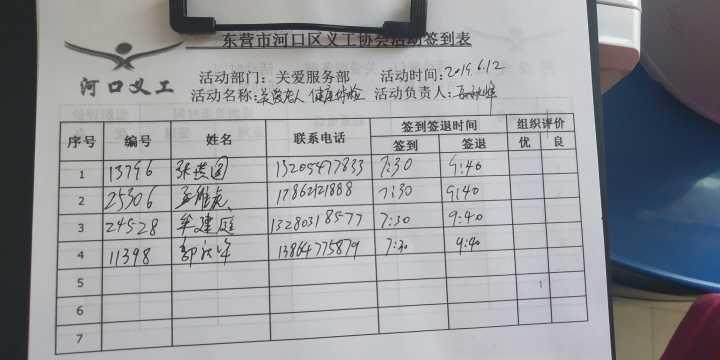 东营市河口区义工协会活动签到表
河口义工
活动部门：关爱服务部 活动时间：2019.6.12
活动名称：关爱老人 健康体检 活动负责人：
序号 编号 姓名 联系电话 签到签退时间 组织评价
签到 签退 优 良
1 13796 13205477833 7:30 9:40
2 25306 17862121888 7:30 9:40
3 24528 13280318577 7:30 9:40
4 11398 13864775879 7:30 9:40
5
6
7